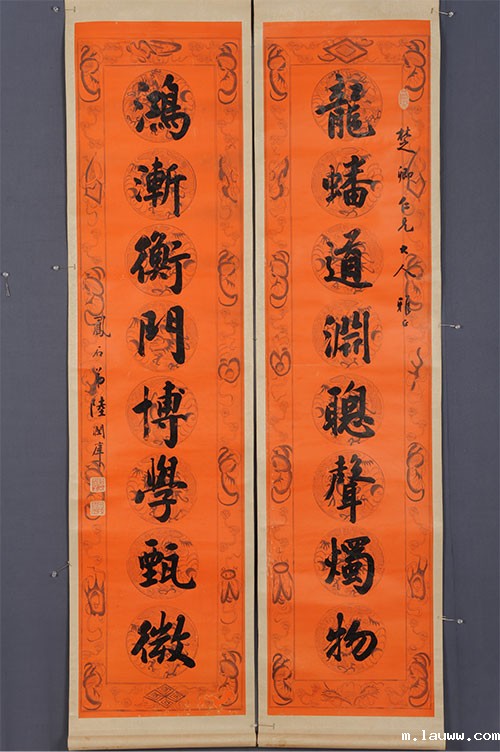 楚卿仁兄大人雅正
龍蟠道淵聰聲燭物
鴻漸衡門博學甄微
鳳石弟陸潤庠
m.lauww.com